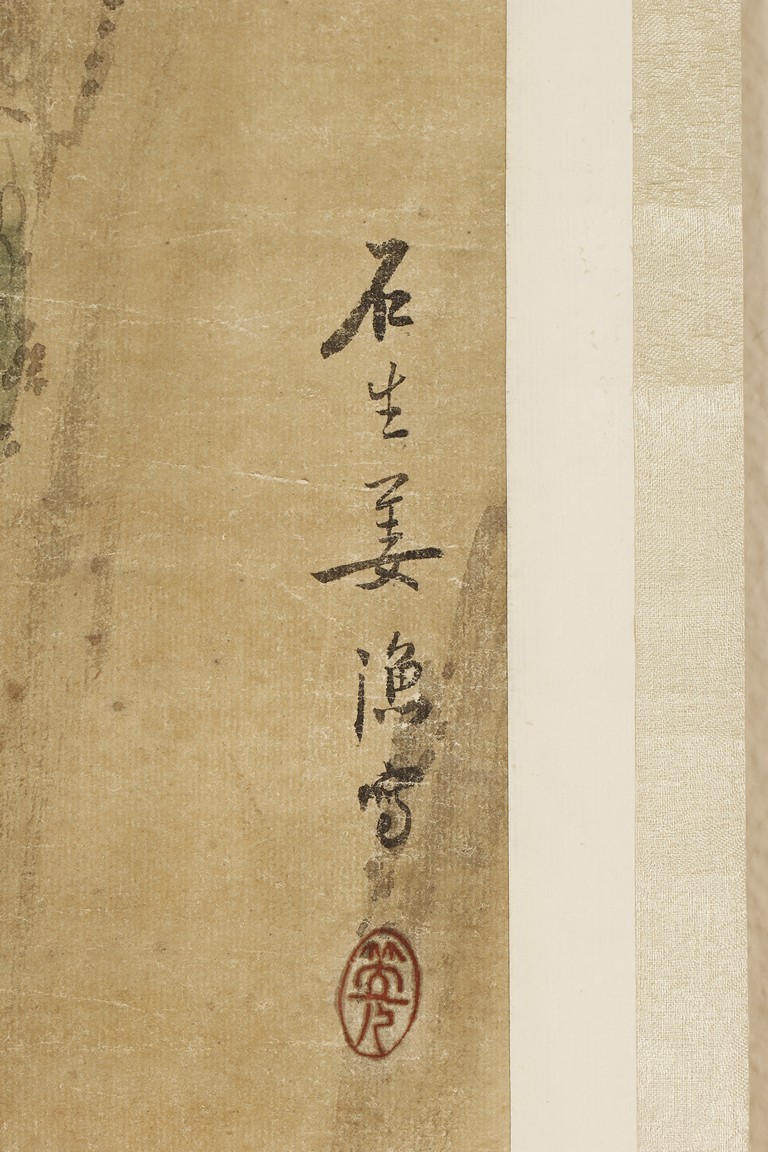 石生姜漁寫